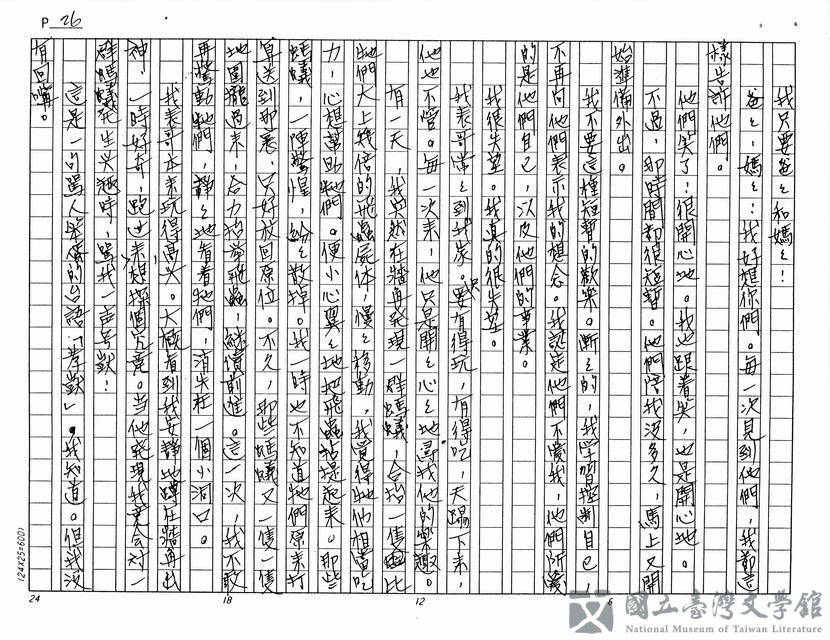 P 26
我只要爸々和媽々!
爸々、媽々:我好想你們。每一次見到他們,我都這
樣告訴他們。
他們笑了,很開心地。我也跟着笑,也是開心地。
不過,那時間都很短暫。他們陪我沒多久,馬上又開
始準備外出。
我不要這種短暫的歡樂。漸々的,我學習控制自己,
不再向他們表示我的想念。我認定他們不愛我,他們所愛
的是他們自己,以及他們的事業。
我很失望。我真的很失望。
我表哥常々到我家。只要有得玩,有得吃,天蹋下來,
他也不管。每一次來,他只是開々心々地尋找他的樂趣。
有一天,我突然在牆角發現一群螞蟻,合抬一隻比
牠們大上幾倍的飛蟲死体,慢々移動,我覺得牠們相當吃
力,心想幫助牠們。便小心翼々地把飛蟲拈提起來。那些
螞蟻,一陣驚惶,紛々散掉。我一時也不知道牠們原來打
算送到那裏,只好放回原位。不久,那些螞蟻又一隻一隻
地圍攏過來,合力抬舉飛蟲,繼續前進。這一次,我不敢
再驚動牠們,靜々地看着牠們,消失在一個小洞口。
我表哥本來玩得高兴。大概看到我安靜地蹲在牆角出
神,一時好奇,跑过来想探個究竟。當他発現我竟会对一
群螞蟻発生兴趣時,罵我一声:孝歎!
這是一句罵人笨蛋的台語「孝歎」。我知道。但我沒
有回嘴。
24
18
12
6
(24X25=600)
國立臺灣文學館
National Museum of Taiwan Literature